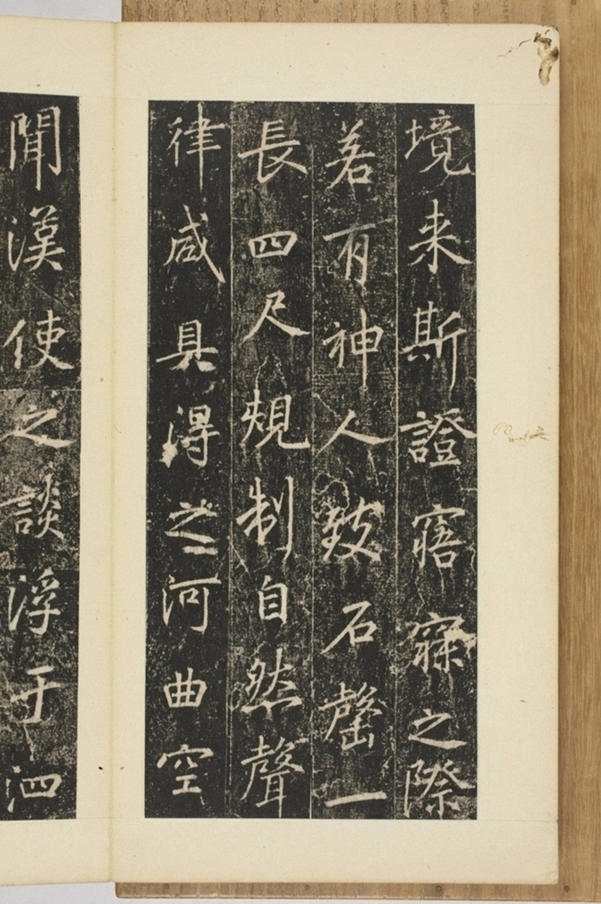 境来斯證寤寐之際
若有神人致石罄一
長四尺規制自然聲
律咸具得之河曲空
聞漢使之談浮于泗